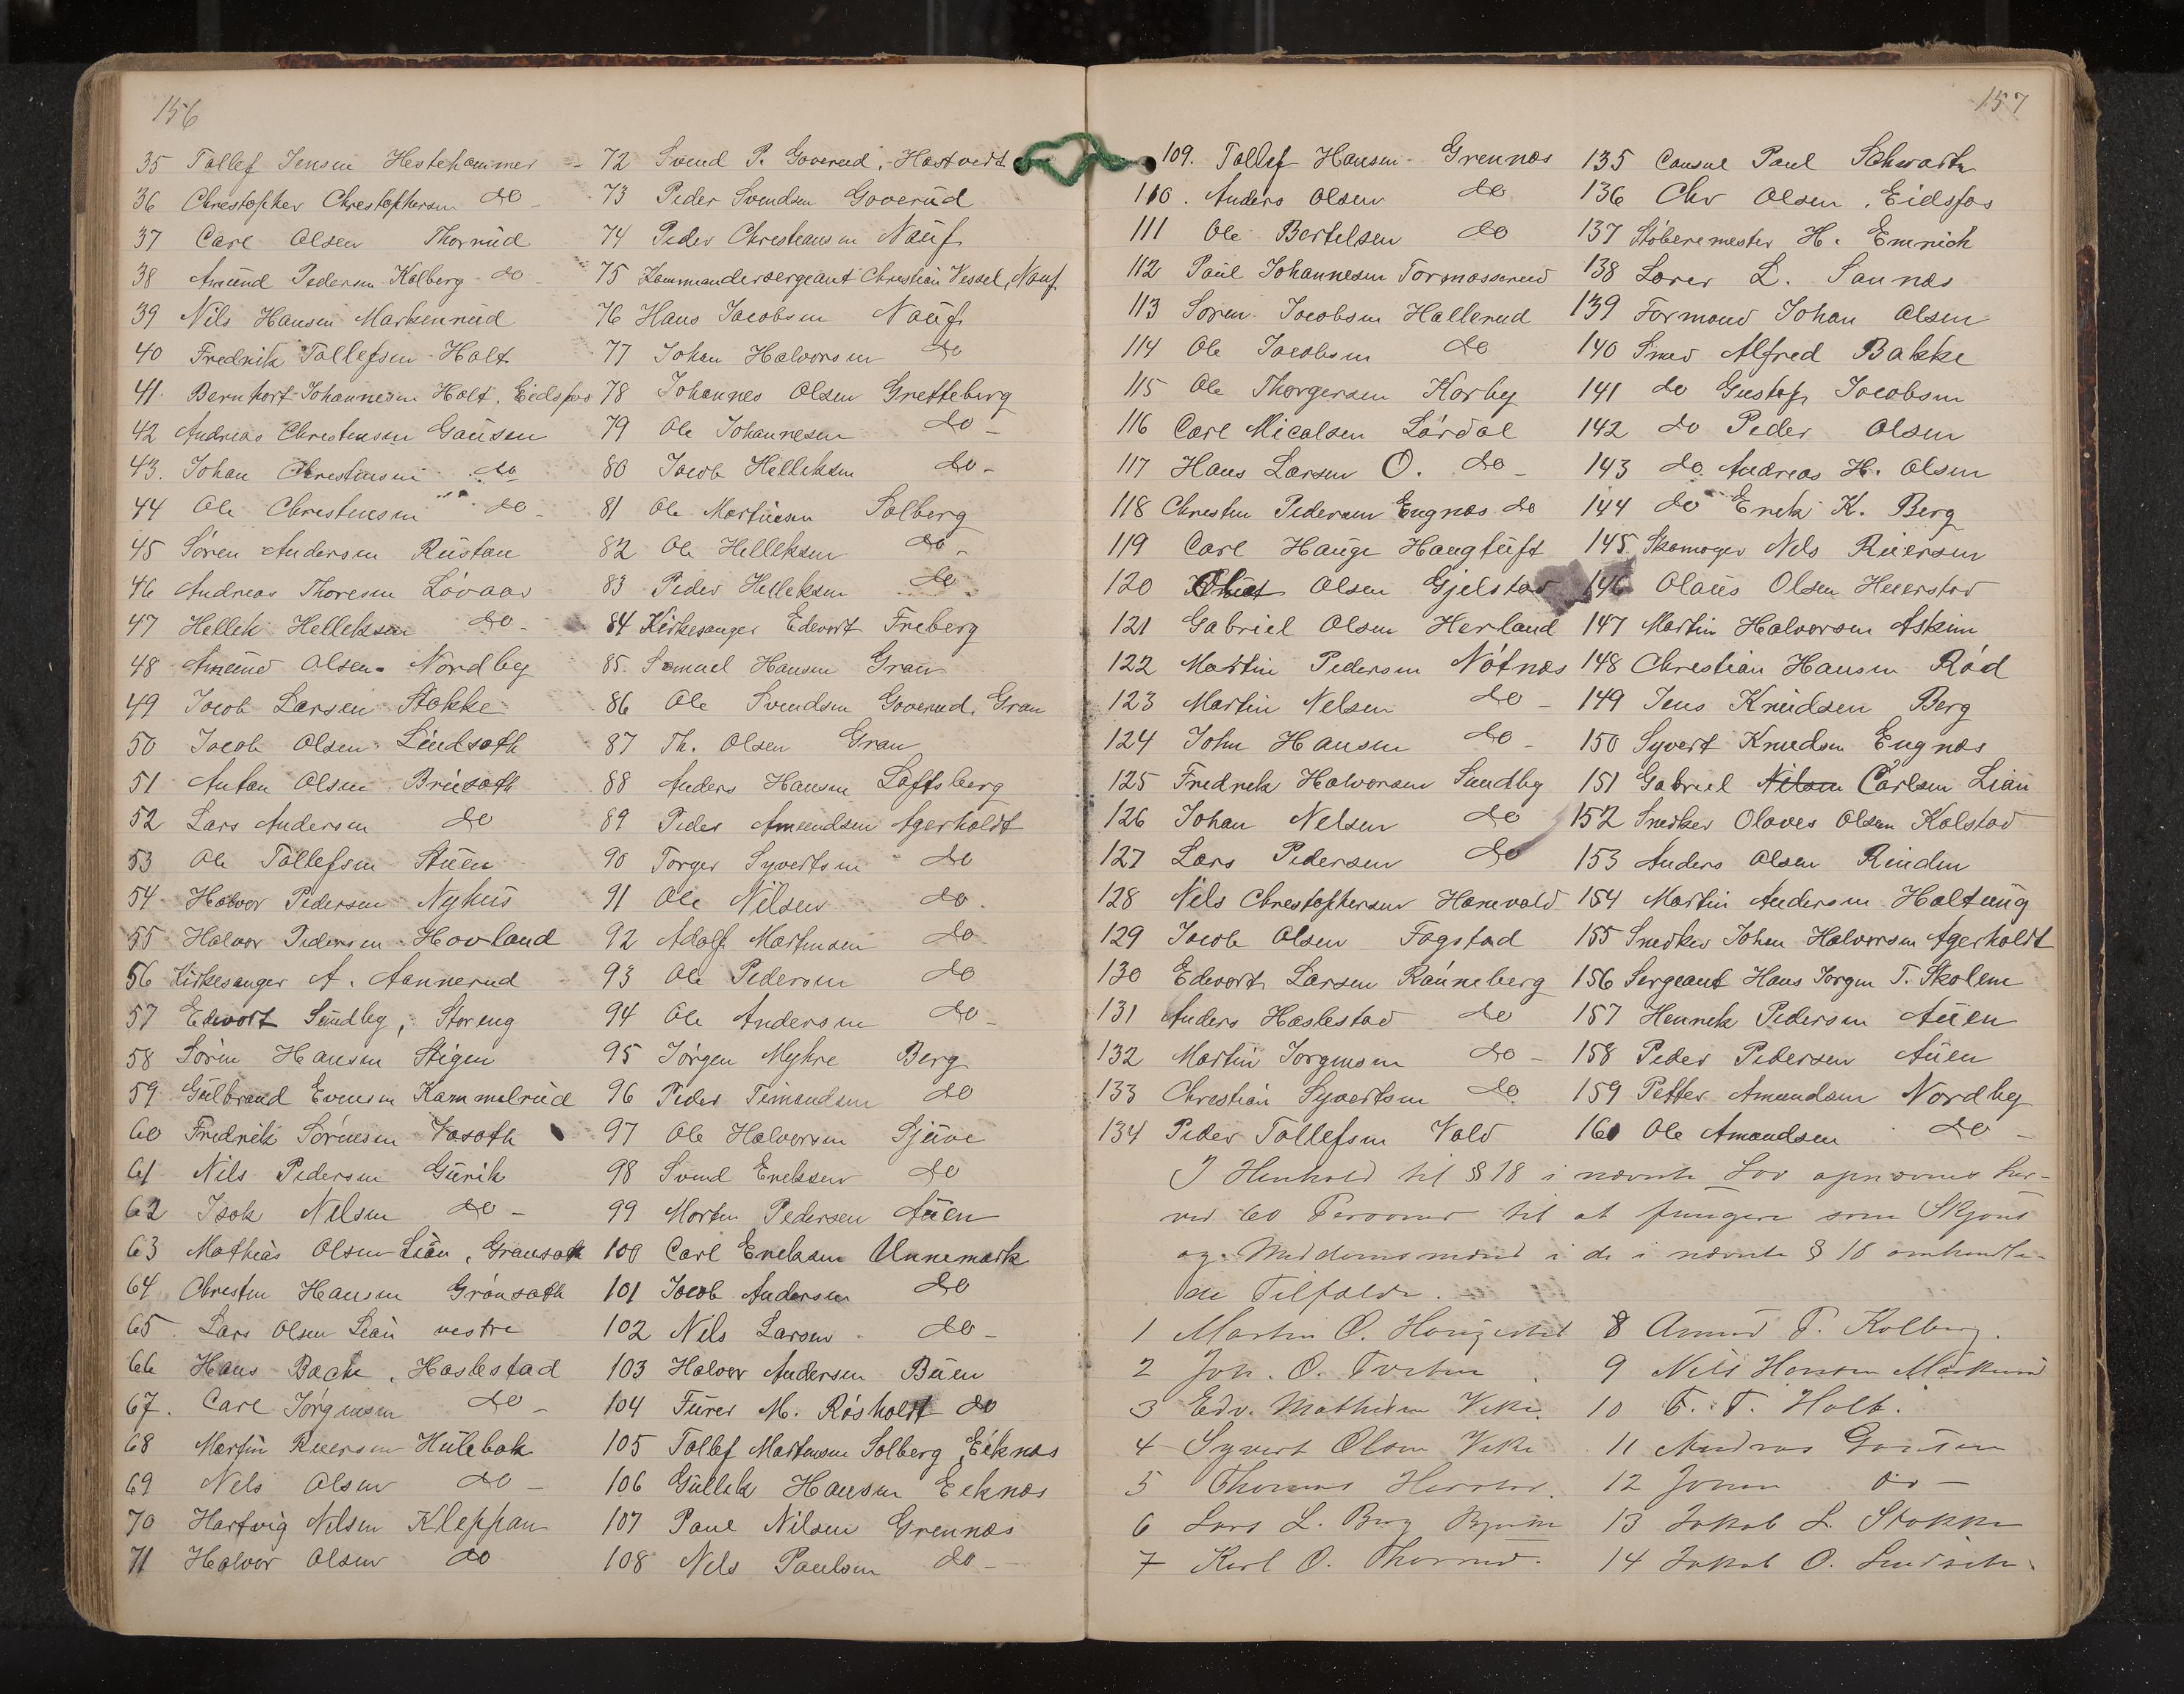 156
35 Tollef Jensen Hestehammer
36 Christopher Christophersen do
37 Carl Olsen Thorrud
38 Amund Pedersen Kolberg do
39 Nils Hansen Markerud
40 Fredrik Tollefsen Holt
41 Bernhart Johannesen Holt, Eidsfos
42 Andreas Christensen Gausen
43. Johan Christensen do
44 Ole Christensen do
45 Sören Andersen Rustan
46 Andreas Thoresen Lövaas
47 Hellek Helleksen do
48 Amund Olsen Nordby
49 Jacob Larsen Stokke
50 Jacob Olsen Lindsæth
51 Anton Olsen Bruseth
52 Lars Andersen do
53 Ole Tollefsen Stuen
54 Halvor Pedersen Nyhus
55 Halvor Pedersen Hovland
56 Kirkesanger A. Aannerud
57 Edvort Sundby, Storeng
58 Sören Hansen Stigen
59 Gulbrand Evensen Kammelrud
60 Fredrik Sörensen Vasæth
61 Nils Pedersen Gurik
62 Isak Nilsen do
63 Mathias Olsen Lian, Gransæth
64 Christen Hansen Grönsæth
65 Lars Olsen Lian vestre
66 Hans Bache, Haslestad
67. Carl Jörgensen do
68 Martin Riversen Hulebak
69 Nels Olsen do
70 Hartvig Nilsen Kleppan
71 Halvor Olsen do
72 Svend P. Goverud, Hostvedt
73 Peder Svendsen Goverud
74 Peder Christiansen Nauf
75 Kommandersergeant Christian Vessel, Nauf
76 Hans Jacobsen Nauf
77 Johan Halvorsen do
78 Johannes Olsen Gretteberg
79 Ole Johannesen do
80 Jacob Helleksen do
81 Ole Martinsen Solberg
82 Ole Helleksen do
83 Peder Helleksen do
84 Kirkesanger Edvort Freberg
85. Samuel Hansen Gran
86 Ole Svendsen Goverud, Gran
87 Th. Olsen Gran
88 Anders Hansen Loftsberg
89 Peder Amundsen Agerholdt
90 Torger Syvertsen do
91 Ole Nilsen do
92 Adolf Martinsen do
93 Ole Pedersen do
94 Ole Andersen do
95 Jörgen Myhre Berg
96 Peder Simondsen do
97 Ole Halvorsen Sjuve
98 Svend Ereksen do
99 Morten Pedersen Auen
100 Carl Ereksen Unnemark
101 Jacob Andersen do
102 Nils Larsen do
103 Halvor Andersen Buen
104 Furer M. Rösholdt do
105 Tollef Martinsen Solberg, Eiknæs
106 Gullek Hansen Eeknæs
107 Paul Nilsen Grennæs
108 Nels Paulsen do
157
109. Tollef Hansen Grennæs
110. Anders Olsen do
111 Ole Bertelsen do
112 Paul Johannesen Tormasserud
113 Sören Jacobsen Hallerud
114 Ole Jacobsen do
115 Ole Thorgersen Korby
116 Carl Micalsen Lördal
117 Hans Larsen O. do
118 Christen Pedersen Engnæs do
119 Carl Hauge Haugtuft
120 Olsen Gjelstad
121 Gabriel Olsen Herland
122 Martin Pedersen Nötnæs
123 Martin Nelsen do
124 John Hansen do
125 Fredrek Halvorsen Sundby
126 Johan Nelsen do
127 Lars Pedersen do
128 Nils Christophersen Hanevold
129 Jacob Olsen Fogstad
130 Edvort Larsen Ranneberg
131 Anders Haslestad do
132 Martin Jorgensen do
133 Christian Syvertsen do
134 Peder Tollefsen Vold
135 Consul Paul Schwartz
136 Chr Olsen, Eidsfos
137 Stöberemester H. Emrich
138 Lærer L. Saunæs
139 Formand Johan Olsen
140 Smed Alfred Bakke
141 do Gustaf Jacobsen
142 do Peder Olsen
143 do Andreas H. Olsen
144 do Erek K. Berg
145 Skomager Nels Riversen
146 Olaus Olsen Heierstad
147 Martin Halvorsen Askim
148 Christian Hansen Röd
149 Jens Knudsen Berg
150 Syvert Knudsen Engnæs
151 Gabriel Nilsen Carlsen Lian
152 Snedker Olaves Olsen Kolstad
153 Anders Olsen Rinden
154 Martin Andersen Holtung
155 Snedker Johan Halvorsen Agerholdt
156 Sergeant Hans Jorgen T. Skolem
157 Henrek Pedersen Auen
158 Peder Pedersen Auen
159 Petter Amundsen Nordby
160 Ole Amundsen do
I Henhold til § 18 i nævnte Lov opnævnes her-
ved 60 Personer til at fungere som Skjöns
og Meddomsmænd i de i nævnte § 18 omhandle-
de Tilfælde.
1 Martin O.
2 Joh. O.
3 Edv. Mathisen Veke
4 Syvert Olsen Veke
5 Thomas
6 Lars L. Berg
7 Karl O. Thorrud.
8 Amund P. Kolberg.
9 Nils Hansen Markerud
10 F. T. Holt.
11 Andreas Gausen
12 Johan do
13 Jakob L. Stokke
14 Jakob O. Lindsæth